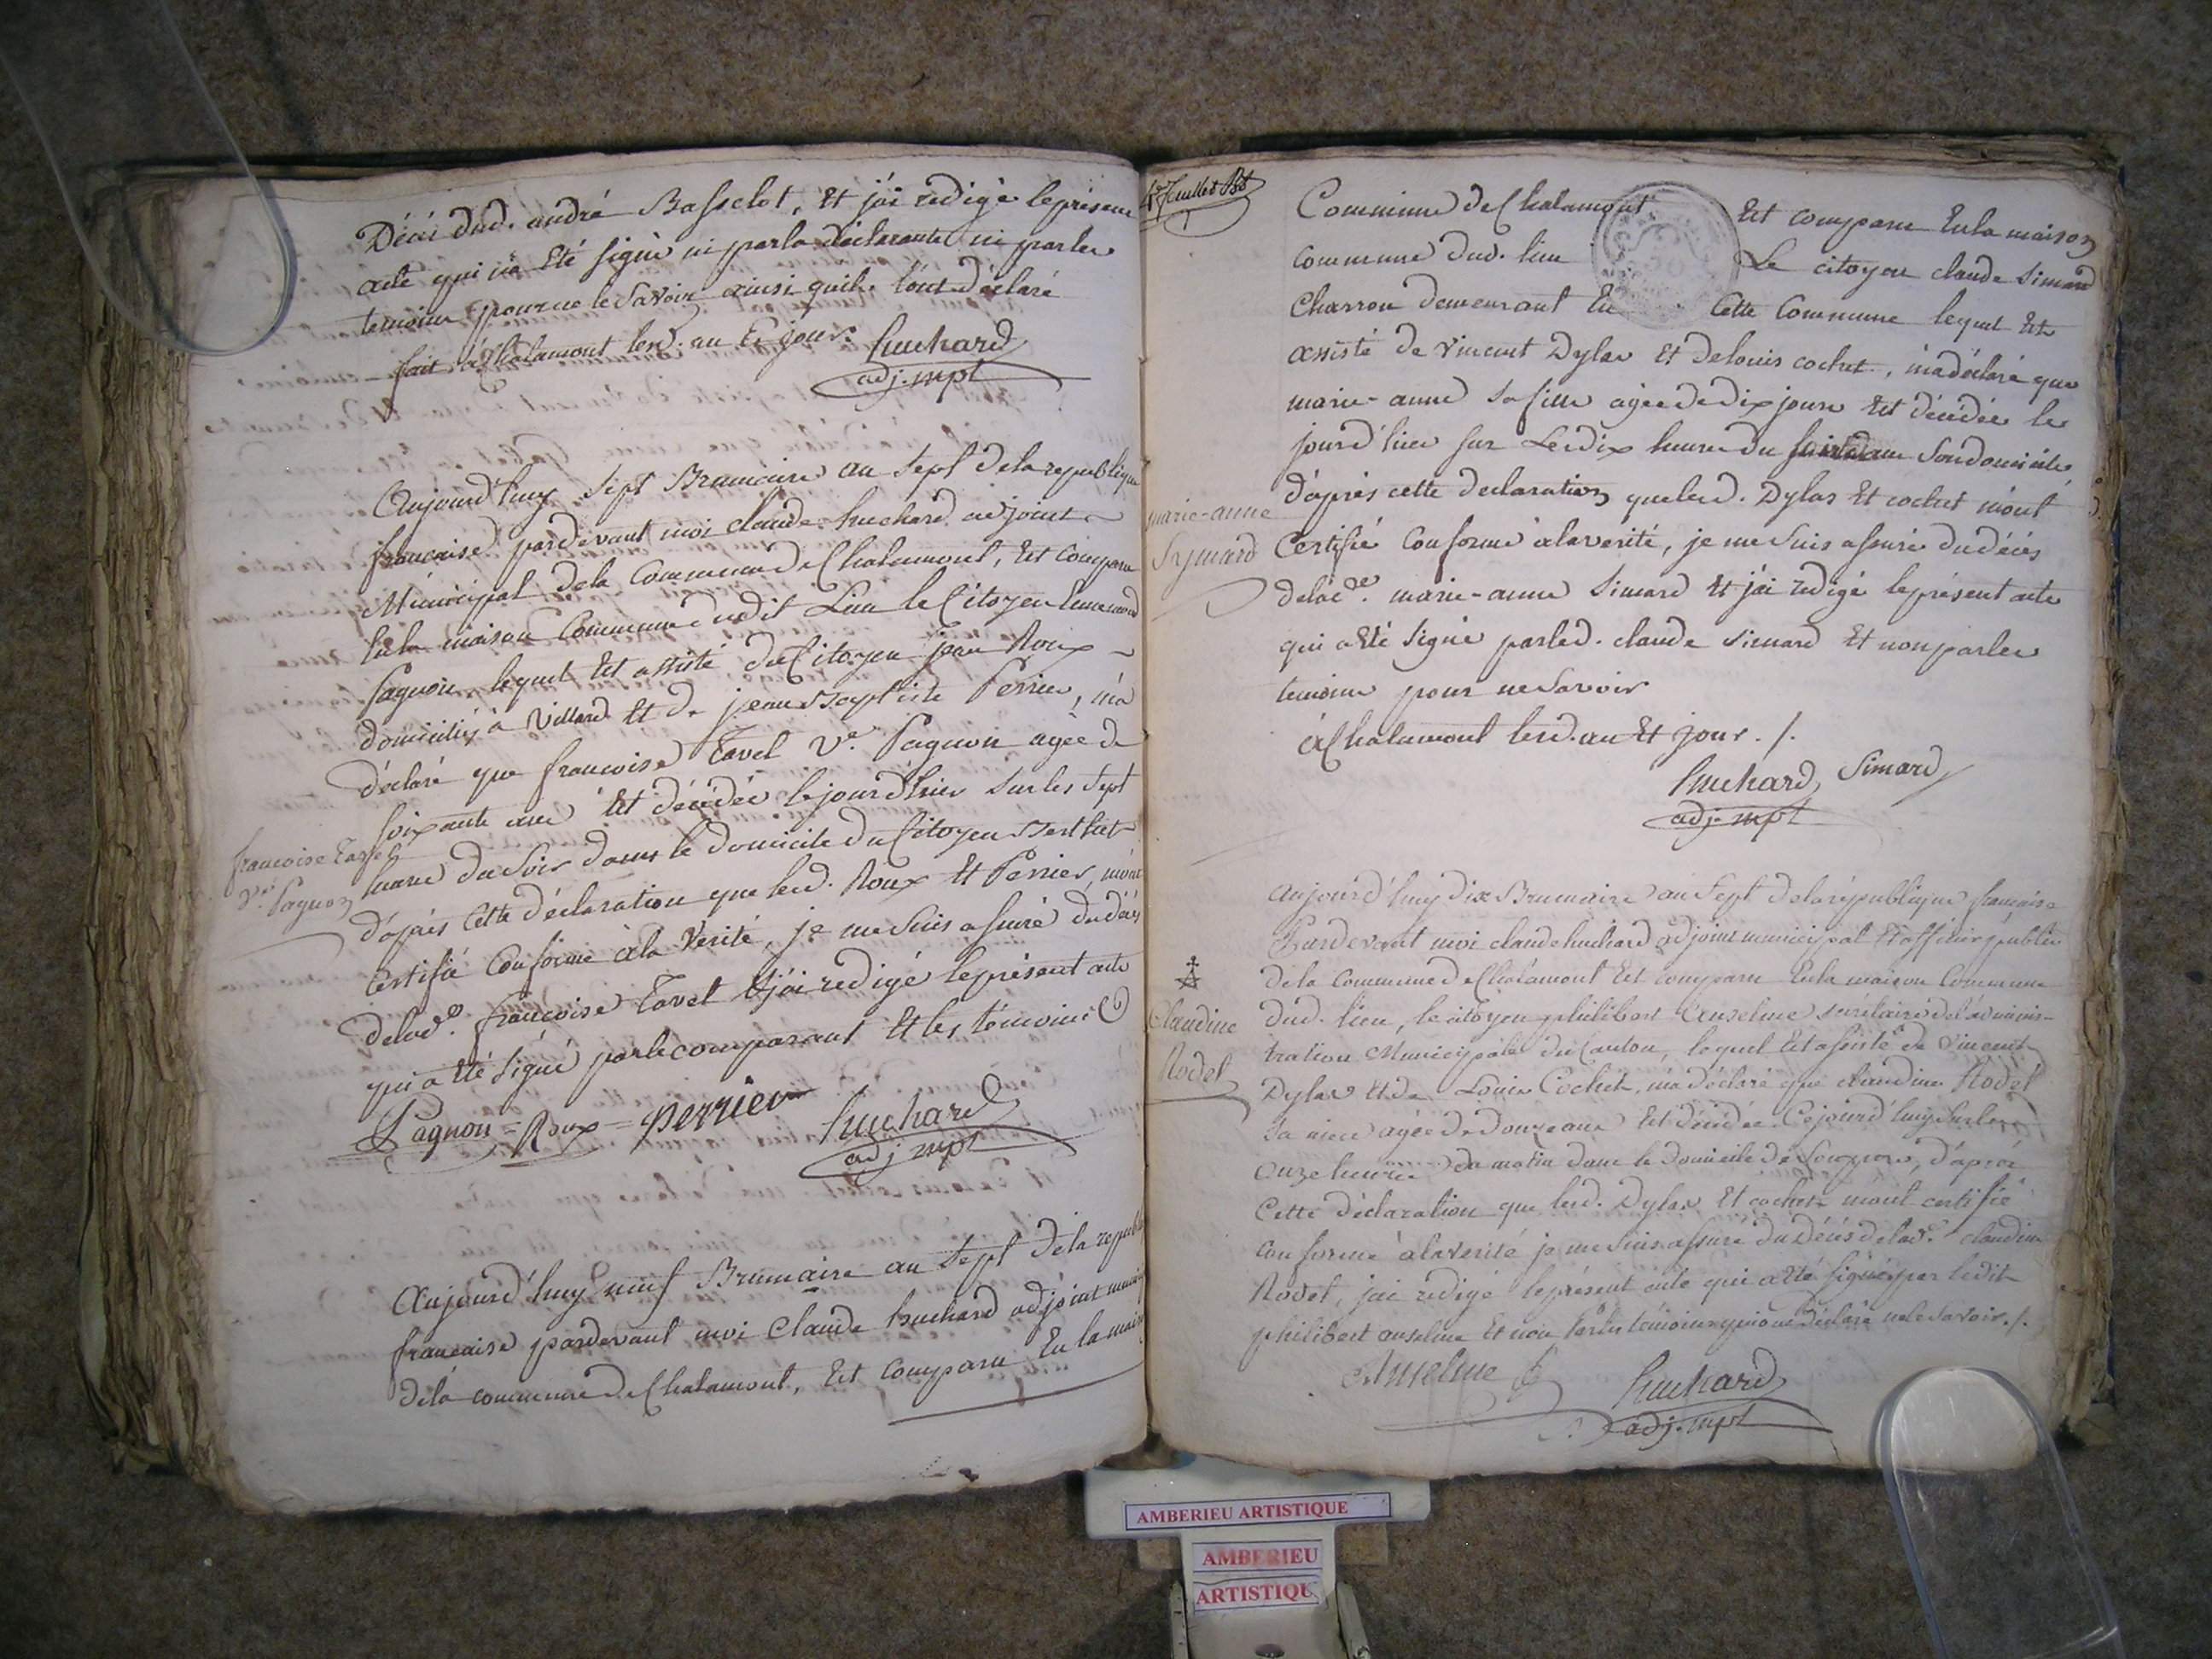 Décés dud. andré Basselot, Et j'ai redigé le présent
acte qui n'a Eté signé ni par la déclarante ni par les
temoins pour ne le Savoir ainsi quils l'ont déclaré
fait à Chalamont lesd. an Et jour.
huchard
adj. mpl
Aujourd'huy sept Brumaire an sept de la republique
francaise pardevant moi claude huchard adjoint
Municipal de la Commune de Chalamont, Est Comparu
En la maison Commune dudit Lieu le Citoyen
Pagnon lequel Est assisté du Citoyen jean Roux
domiciliés à Villard Et de jean Baptiste Perrier, m'a
déclaré que francoise Tavel Ve. Pagnon agée de
soixante ans Est décédée le jour d'hier sur les sept
heures du Soir dans le domicile du Citoyen Berthet
d'après Cette déclaration que lesd. Roux Et Perrier m'ont
Certifié Conforme à la Verité, je me suis assuré du décés
de lade. francoise Tavel Et j'ai redigé le présent acte
qui a Eté signé par le comparant Et les témoins
francoise Tavel
Ve. Pagnon
Pagnon = Roux = perrier
huchard
adj. mpl
Aujourd'huy neuf Brumaire an sept de la republi
francaise pardevant moi Claude huchard adjoint muni
de la commune de Chalamont, Est Comparu En la mais
4e. feuillet Bt
Commune de Chalamont Est comparu En la maison
Commune dud. lieu Le citoyen claude Simard
Charron demeurant En Cette Commune lequel Est
assisté de Vincent Dylas Et de louis cochet, m'a déclaré que
marie-anne sa fille agée de dix jours Est décédée le
jour d'hier sur Les dix heures du soir dans son domicile
d'après cette declaration que lesd. Dylas Et cochet m'ont
Certifié Conforme à la verité, je me suis assuré du décés
de lade. marie-anne Simard Et j'ai redigé le présent acte
qui a Eté signé par led. claude Simard Et non par les
temoins pour ne savoir
à Chalamont lesd. an Et jour ./.
marie-anne
Symard
huchard Simard
adj. mpl
Aujourd'huy dix Brumaire an sept de la république francaise
Pardevant moi claude huchard adjoint municipal Et officier public
de la Commune de Chalamont Est comparu En la maison Commune
dud. lieu, le citoyen philibert Anselme sécrétaire de l'adminis-
tration Municipale du Canton, lequel Est assisté de Vincent
Dylas Et de Louis Cochet, m'a déclaré que claudine Rodet
sa niece agée de douze ans Est décédée Cejourd'huy sur les
onze heures du matin dans le domicile de , d'après
Cette déclaration que lesd. Dylas Et cochet m'ont certifié
conforme à la verité je me suis assuré du Décés de lade. claudine
Rodet, j'ai redigé le présent acte qui a Eté signé par ledit
philibert anselme Et non par les témoins qui ont déclaré ne le savoir ./.
Claudine
Rodet
Anselme
huchard
adj. mpl
AMBERIEU ARTISTIQUE
AMBERIEU
ARTISTIQU